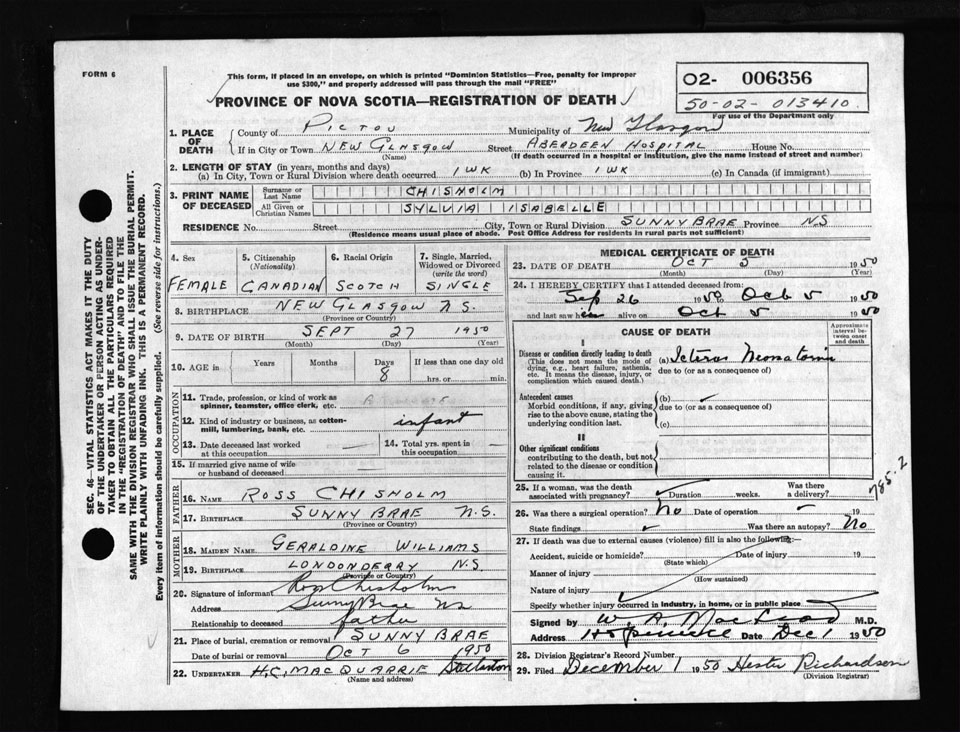 FORM 6
This form, if placed in an envelope, on which is printed "Dominion Statistics—Free, penalty for improper
use $300," and properly addressed will pass through the mail "FREE"
O2- 006356
50-02-013410
For use of the Department only
PROVINCE OF NOVA SCOTIA—REGISTRATION OF DEATH
1. PLACE OF DEATH
County of PICTOU Municipality of New Glasgow
If in City or Town NEW GLASGOW Street ABERDEEN HOSPITAL House No.
(Name) (If death occurred in a hospital or institution, give the name instead of street and number)
2. LENGTH OF STAY (in years, months and days)
(a) In City, Town or Rural Division where death occurred 1 WK (b) In Province 1 WK (c) In Canada (if immigrant)
3. PRINT NAME OF DECEASED
Surname or Last Name CHISHOLM
All Given or Christian Names SYLVIA ISABELLE
RESIDENCE No. Street City, Town or Rural Division SUNNY BRAE Province N.S
(Residence means usual place of abode. Post Office Address for residents in rural parts not sufficient)
4. Sex FEMALE
5. Citizenship (Nationality) CANADIAN
6. Racial Origin SCOTCH
7. Single, Married, Widowed or Divorced (write the word) SINGLE
8. BIRTHPLACE NEW GLASGOW N.S.
(Province or Country)
9. DATE OF BIRTH SEPT 27 1950
(Month) (Day) (Year)
10. AGE in Years Months Days 8 If less than one day old
hrs. or min.
OCCUPATION
11. Trade, profession, or kind of work as
spinner, teamster, office clerk, etc.
12. Kind of industry or business, as cotton-
mill, lumbering, bank, etc. infant
13. Date deceased last worked
at this occupation
14. Total yrs. spent in
this occupation
15. If married give name of wife
or husband of deceased
FATHER
16. NAME ROSS CHISHOLM
17. BIRTHPLACE SUNNY BRAE N.S.
(Province or Country)
MOTHER
18. MAIDEN NAME GERALDINE WILLIAMS
19. BIRTHPLACE LONDONDERRY N.S
(Province or Country)
20. Signature of informant Ross Chisholm
Address Sunny Brae NS
Relationship to deceased father
21. Place of burial, cremation or removal SUNNY BRAE
Date of burial or removal OCT 6 1950
22. UNDERTAKER H.C. MACQUARRIE Stellarton
(Name and address)
MEDICAL CERTIFICATE OF DEATH
23. DATE OF DEATH OCT 5 1950
(Month) (Day) (Year)
24. I HEREBY CERTIFY that I attended deceased from:
Sep 26 1950 Oct 5 1950
and last saw alive on Oct 5 1950
CAUSE OF DEATH
Approximate interval between onset and death
I
Disease or condition directly leading to death
(This does not mean the mode of
dying, e.g., heart failure, asthenia,
etc. It means the disease, injury, or
complication which caused death.)
(a) Icterus Neonatorum
due to (or as a consequence of)
Antecedent causes
Morbid conditions, if any, giving
rise to the above cause, stating the
underlying condition last.
(b)
due to (or as a consequence of)
(c)
II
Other significant conditions
contributing to the death, but not
related to the disease or condition
causing it.
25. If a woman, was the death
associated with pregnancy? Duration weeks. Was there
a delivery?
785.2
26. Was there a surgical operation? No Date of operation 19
State findings Was there an autopsy? No
27. If death was due to external causes (violence) fill in also the following:—
Accident, suicide or homicide? Date of injury 19
(State which)
Manner of injury
(How sustained)
Nature of injury
Specify whether injury occurred in industry, in home, or in public place
Signed by W. A. MacLeod M.D.
Address Date Dec 1 1950
28. Division Registrar's Record Number
29. Filed December 1 1950 Hester Richardson
(Division Registrar)
SEC. 46—VITAL STATISTICS ACT MAKES IT THE DUTY
OF THE UNDERTAKER OR PERSON ACTING AS UNDER-
TAKER TO OBTAIN ALL THE PARTICULARS REQUIRED
IN THE "REGISTRATION OF DEATH" AND TO FILE THE
SAME WITH THE DIVISION REGISTRAR WHO SHALL ISSUE THE BURIAL PERMIT.
WRITE PLAINLY WITH UNFADING INK. THIS IS A PERMANENT RECORD.
Every item of information should be carefully supplied. (See reverse side for instructions.)